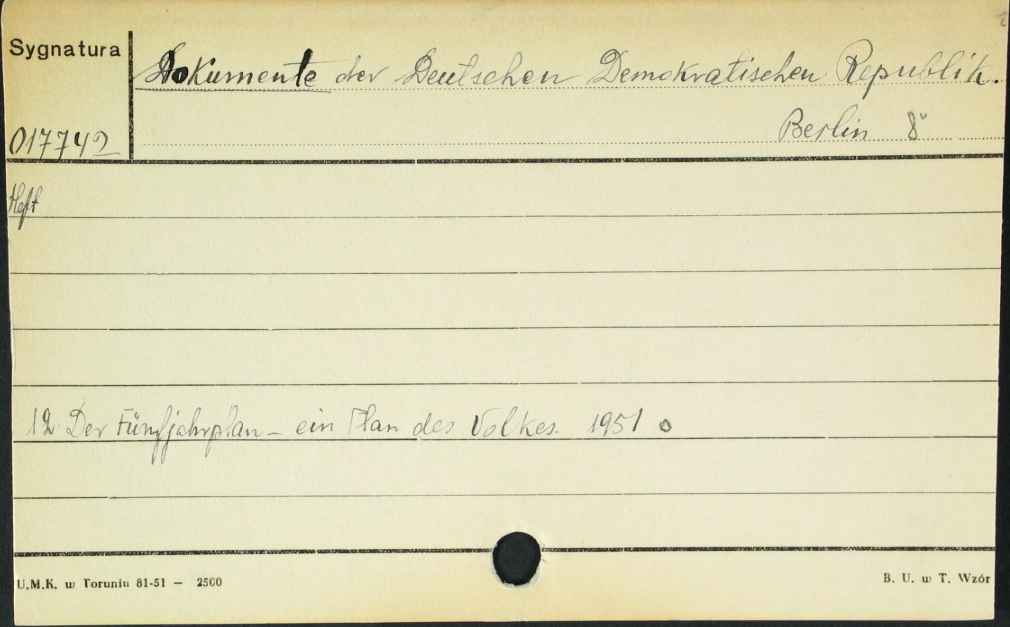 Sygnatura
Dokumente der Deutschen Demokratischen Republik.
017742
Berlin 8°
Heft
12 Der Fünfjahrplan – ein Plan des Volkes. 1951 o
U.M.K. w Toruniu 81-51 — 2500
B. U. w T. Wzór